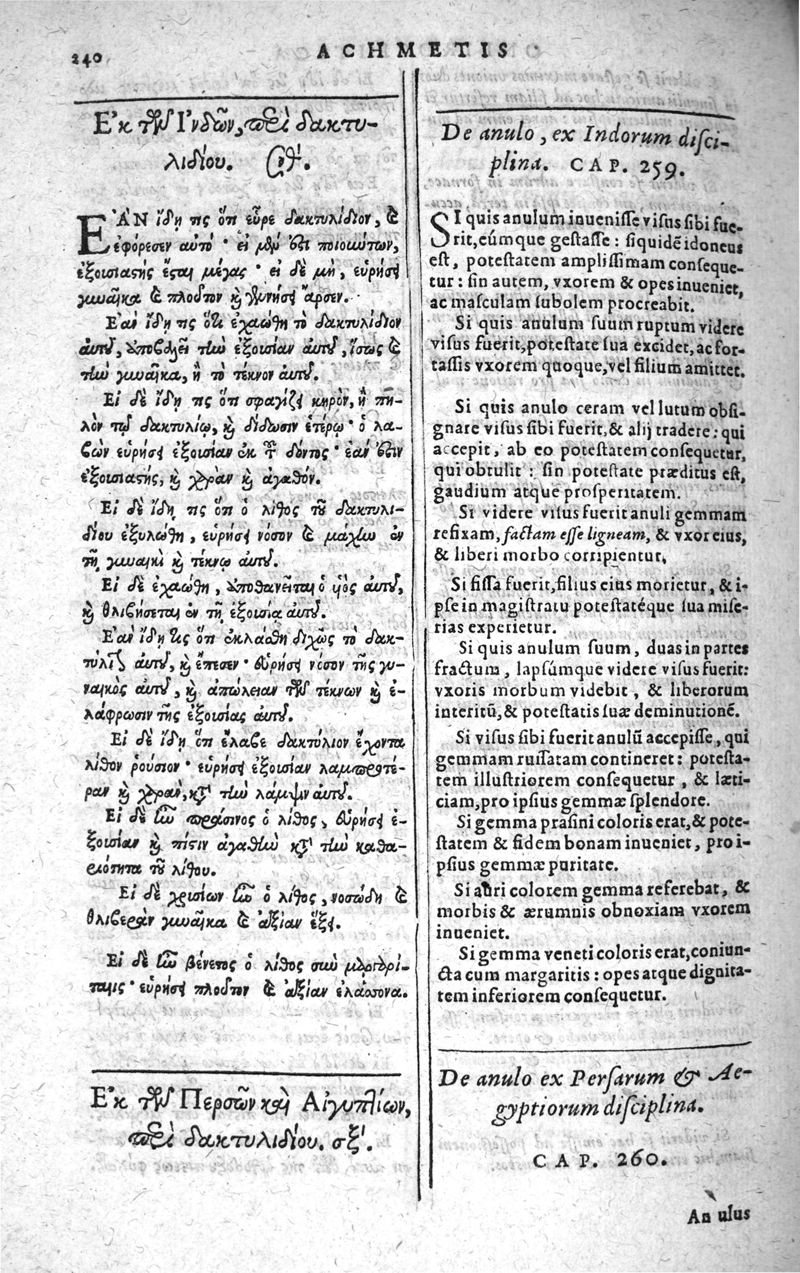 240 ACHMETIS
Ἐκ τῶν Ἰνδῶν, περὶ δακτυ-
λιδίου. σνθ΄.
ΕΑΝ ἴδη τις ὅτι εὗρε δακτυλίδιον, καὶ
ἐφόρεσεν αὐτὸ· εἰ μὲν ἐστι τῶν,
ἐξουσιαστὴς ἔσται μέγας· εἰ δὲ μὴ, εὑρήσει
γυναῖκα καὶ πλοῦτον καὶ γεννήσει ἄρσεν.
Ἐὰν ἴδη τις ὅτι ἐχαώθη τὸ δακτυλίδιον
αὐτοῦ, ἀποβαλεῖ τὴν ἐξουσίαν αὐτοῦ, ἴσως καὶ
τὴν γυναῖκα, ἢ τὸ τέκνον αὐτοῦ.
Εἰ δὲ ἴδη τις ὅτι σφαγίζει κηρὸν, ἢ πη-
λὸν τῷ δακτυλίῳ, καὶ δίδωσιν ἑτέρῳ· ὁ λα-
βὼν εὑρήσει ἐξουσίαν ἐκ τοῦ δόντος· ἐὰν ἐστιν
ἐξουσιαστὴς, καὶ χαρὰν καὶ ἀγαθόν.
Εἰ δὲ ἴδη τις ὅτι ὁ λίθος τοῦ δακτυλι-
δίου ἐξυλώθη, εὑρήσει νόσον καὶ μάχην ἐν
τῇ γυναικὶ καὶ τέκνῳ αὐτοῦ.
Εἰ δὲ ἐχαώθη, ἀποθανεῖται ὁ υἱὸς αὐτοῦ,
καὶ θλιβήσεται ἐν τῇ ἐξουσίᾳ αὐτοῦ.
Ἐὰν ἴδη τις ὅτι ἐκλάσθη διχῶς τὸ δακ-
τυλίδιον αὐτοῦ, καὶ ἔπεσεν· εὑρήσει νόσον τῆς γυ-
ναικὸς αὐτοῦ, καὶ ἀπώλειαν τῶν τέκνων καὶ ἐ-
λάφρωσιν τῆς ἐξουσίας αὐτοῦ.
Εἰ δὲ ἴδη ὅτι ἔλαβε δακτύλιον ἔχοντα
λίθον ῥούσιον· εὑρήσει ἐξουσίαν λαμπροτέ-
ραν καὶ χαρὰν, κατὰ τὴν λάμψιν αὐτοῦ.
Εἰ δὲ ἦν πράσινος ὁ λίθος, εὑρήσει ἐ-
ξουσίαν καὶ πίστιν ἀγαθὴν κατὰ τὴν καθα-
ριότητα τοῦ λίθου.
Εἰ δὲ χρισίων ἦν ὁ λίθος, νοσώδη καὶ
θλιβερὰν γυναῖκα καὶ ἀξίαν ἕξει.
Εἰ δὲ ἦν βένετος ὁ λίθος σὺν μαργαρί-
ταις· εὑρήσει πλοῦτον καὶ ἀξίαν ἐλάσσονα.
Ἐκ τῶν Περσῶν καὶ Αἰγυπτίων,
περὶ δακτυλιδίου. σξ΄.
De anulo, ex Indorum disci-
plina. CAP. 259.
SI quis anulum inuenisse visus sibi fue-
rit, eúmque gestasse: siquidē idoneus
est, potestatem amplissimam conseque-
tur: sin autem, vxorem & opes inueniet,
ac masculam subolem procreabit.
Si quis anulum suum ruptum videre
visus fuerit, potestate sua excidet, ac for-
tassis vxorem quoque, vel filium amittet.
Si quis anulo ceram vel lutum obsi-
gnare visus sibi fuerit, & alij tradere: qui
accepit, ab eo potestatem consequetur,
qui obtulit: sin potestate præditus est,
gaudium atque prosperitatem.
Si videre visus fuerit anuli gemmam
refixam, factam esse ligneam, & vxor eius,
& liberi morbo corripientur.
Si fissa fuerit, filius eius morietur, & i-
pse in magistratu potestatéque sua mise-
rias experietur.
Si quis anulum suum, duas in partes
fractum, lapsúmque videre visus fuerit:
vxoris morbum videbit, & liberorum
interitū, & potestatis suæ deminutionē.
Si visus sibi fuerit anulū accepisse, qui
gemmam russatam contineret: potesta-
tem illustriorem consequetur, & læti-
ciam, pro ipsius gemmæ splendore.
Si gemma prasini coloris erat, & pote-
statem & fidem bonam inueniet, pro i-
psius gemmæ puritate.
Si auri colorem gemma referebat, &
morbis & ærumnis obnoxiam vxorem
inueniet.
Si gemma veneti coloris erat, coniun-
cta cum margaritis: opes atque dignita-
tem inferiorem consequetur.
De anulo ex Persarum & Ae-
gyptiorum disciplina.
CAP. 260.
Anulus